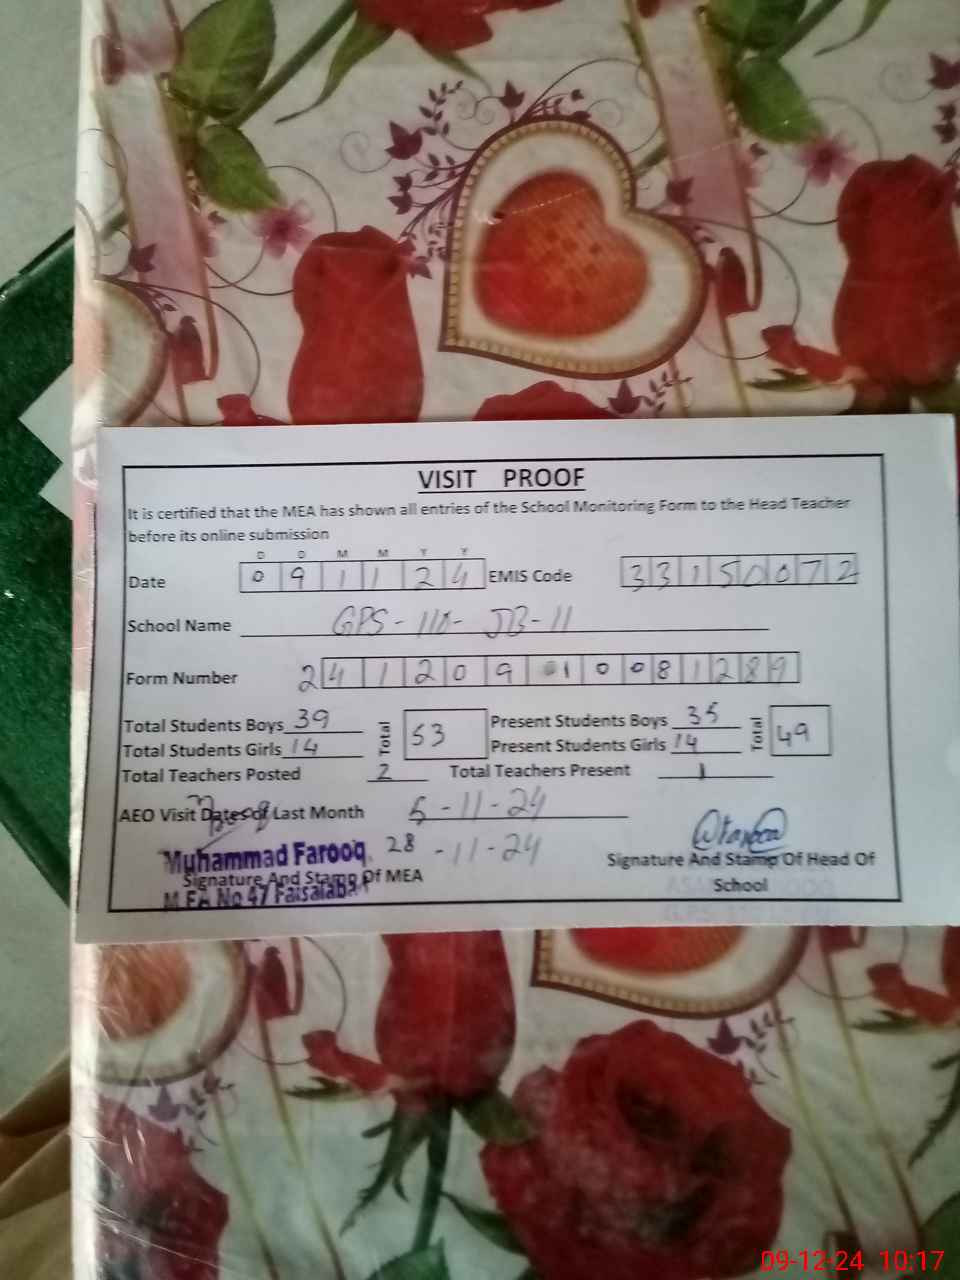 VISIT PROOF
It is certified that the MEA has shown all entries of the School Monitoring Form to the Head Teacher
before its online submission
D D M M Y Y
Date 0 9 1 1 2 4 EMIS Code 3 3 1 5 0 0 7 2
School Name GPS - 110 - JB - 11
Form Number 2 4 1 2 0 9 1 0 0 8 1 2 8 9
Total Students Boys 39 Total 53 Present Students Boys 35 Total 49
Total Students Girls 14 Present Students Girls 14
Total Teachers Posted 2 Total Teachers Present 1
AEO Visit Dates of Last Month 5-11-24
28-11-24
Muhammad Farooq
Signature And Stamp Of MEA
M E A No 47 Faisalabad
Signature And Stamp Of Head Of
School
09-12-24 10:17